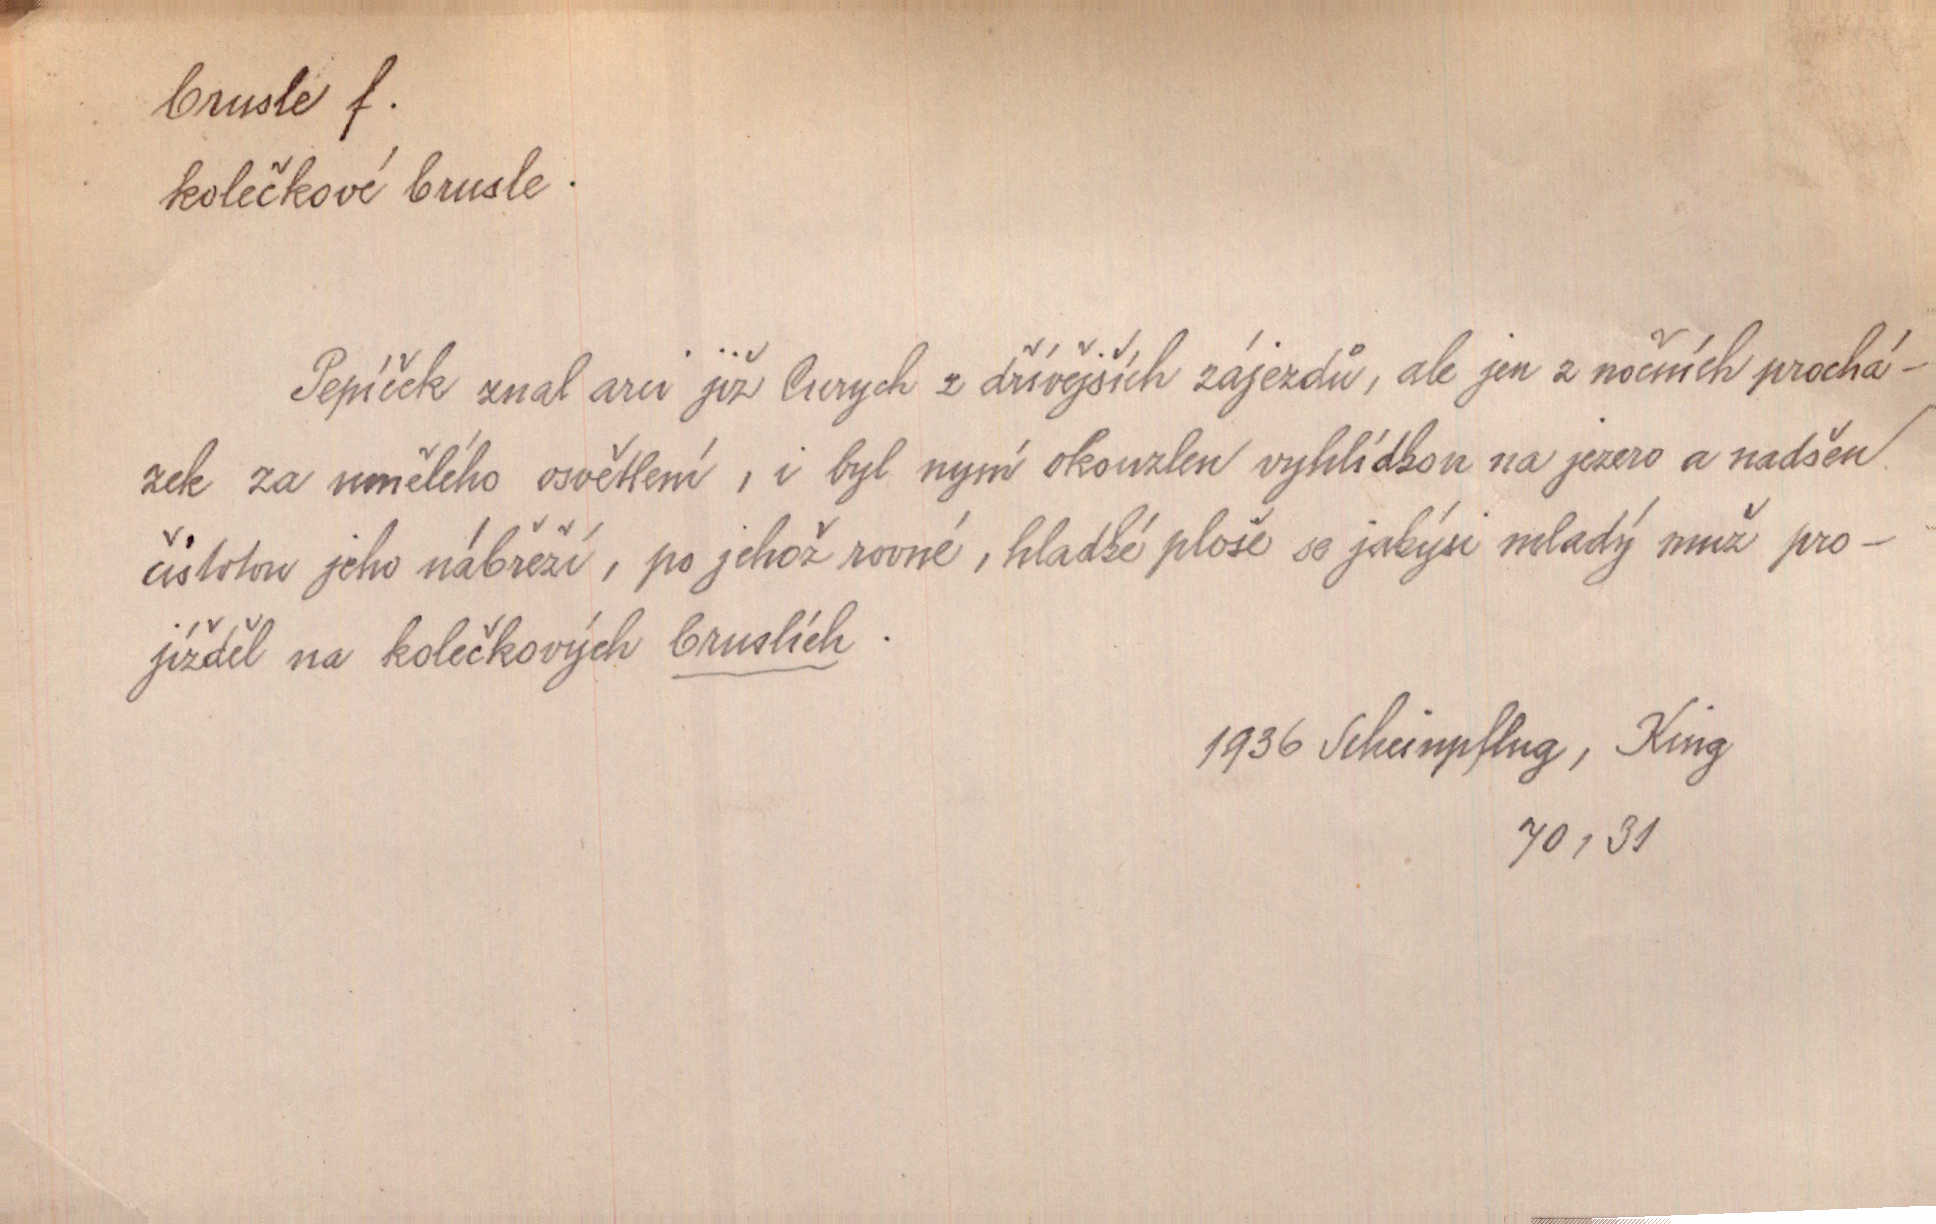 brusle f.
kolečkové brusle.
Pepíček znal arci již Curych z dřívějších zájezdů, ale jen z nočních prochá-
zek za umělého osvětlení, i byl nyní okouzlen vyhlídkou na jezero a nadšen
čistotou jeho nábřeží, po jehož rovné, hladké ploše se jakýsi mladý muž pro-
jížděl na kolečkových bruslích.
1936 Scheinpflug, King
70, 31